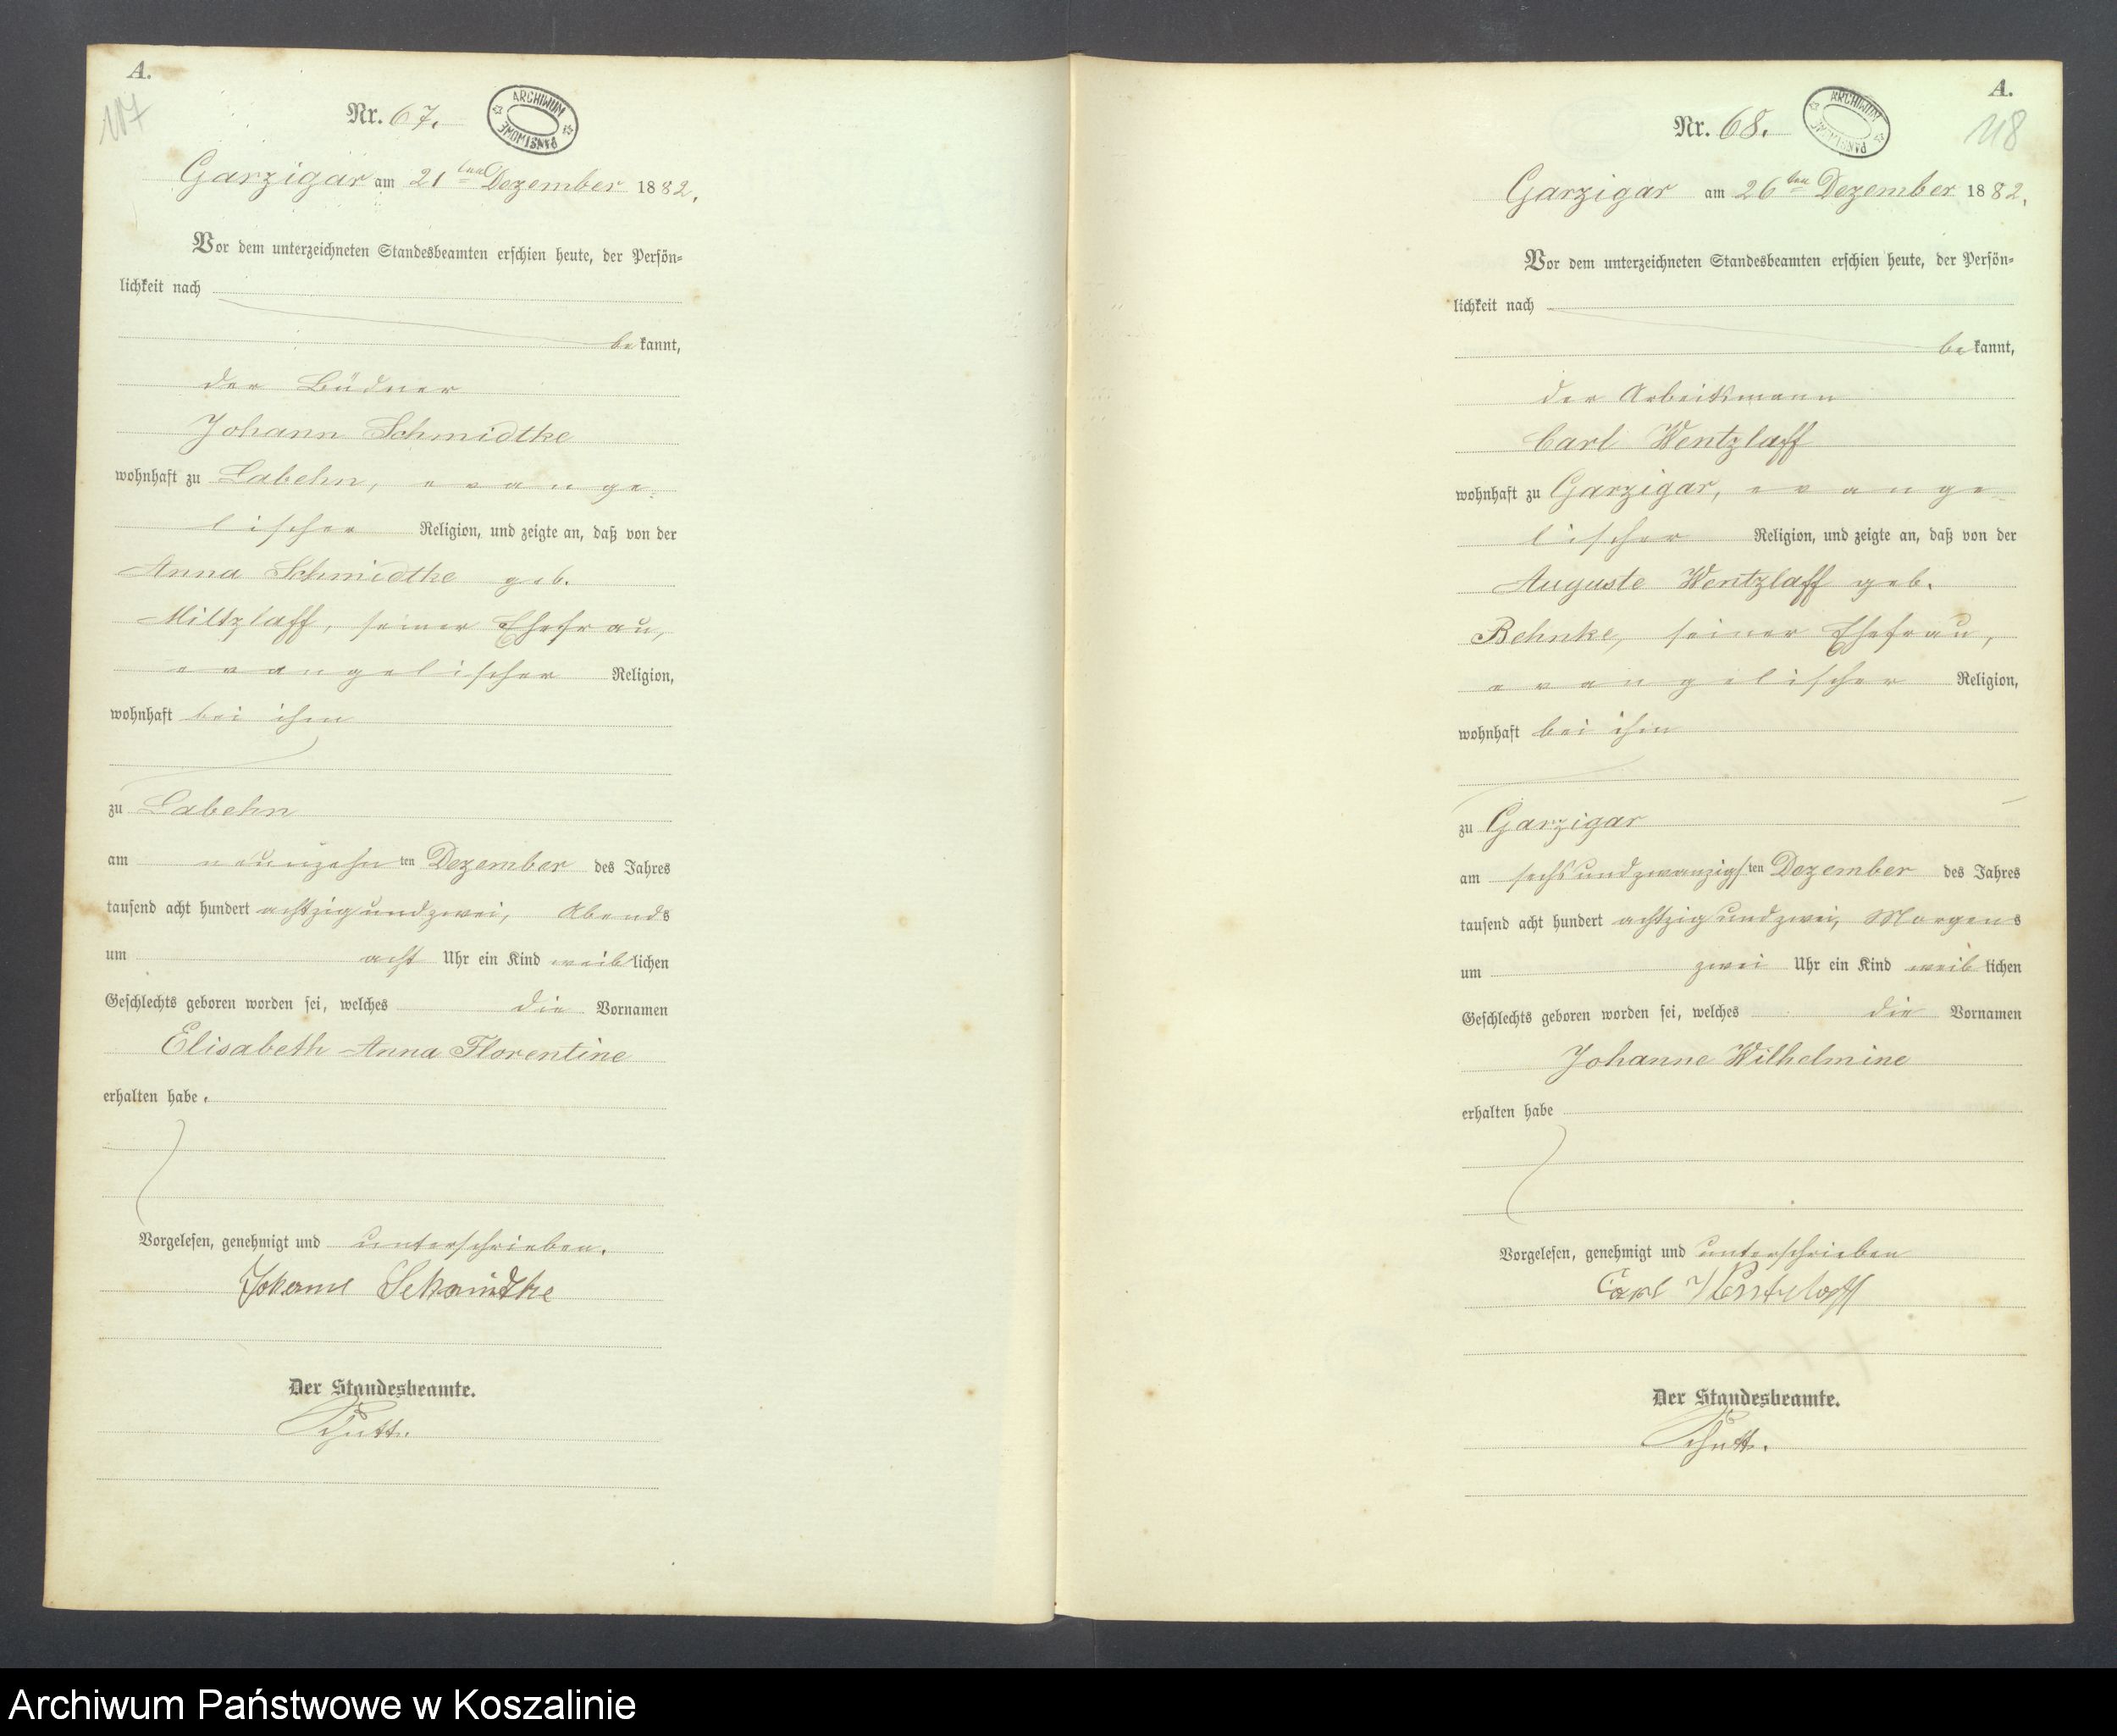 A.
117
Nr. 67.
ARCHIWUM PAŃSTWOWE
Garzigar am 21ten Dezember 1882.
Vor dem unterzeichneten Standesbeamten erschien heute, der Persön-
lichkeit nach
bekannt,
der Büdner
Johann Schmidtke
wohnhaft zu Labehn, evange-
lischer Religion, und zeigte an, daß von der
Anna Schmidtke geb.
Miltzlaff, seiner Ehefrau,
evangelischer Religion,
wohnhaft bei ihm
zu Labehn
am neunzehnten Dezember des Jahres
tausend acht hundert achtzig und zwei, Abends
um acht Uhr ein Kind weiblichen
Geschlechts geboren worden sei, welches die Vornamen
Elisabeth Anna Florentine
erhalten habe.
Vorgelesen, genehmigt und unterschrieben.
Johann Schmidtke
Der Standesbeamte.
A.
118
Nr. 68.
ARCHIWUM PAŃSTWOWE
Garzigar am 26ten Dezember 1882.
Vor dem unterzeichneten Standesbeamten erschien heute, der Persön-
lichkeit nach
bekannt,
der Arbeitsmann
Carl Wentzlaff
wohnhaft zu Garzigar, evange-
lischer Religion, und zeigte an, daß von der
Auguste Wentzlaff geb.
Behnke, seiner Ehefrau,
evangelischer Religion,
wohnhaft bei ihm
zu Garzigar
am sechsundzwanzigsten Dezember des Jahres
tausend acht hundert achtzig und zwei, Morgens
um zwei Uhr ein Kind weiblichen
Geschlechts geboren worden sei, welches die Vornamen
Johanne Wilhelmine
erhalten habe
Vorgelesen, genehmigt und unterschrieben
Carl Wentzlaff
Der Standesbeamte.
Archiwum Państwowe w Koszalinie